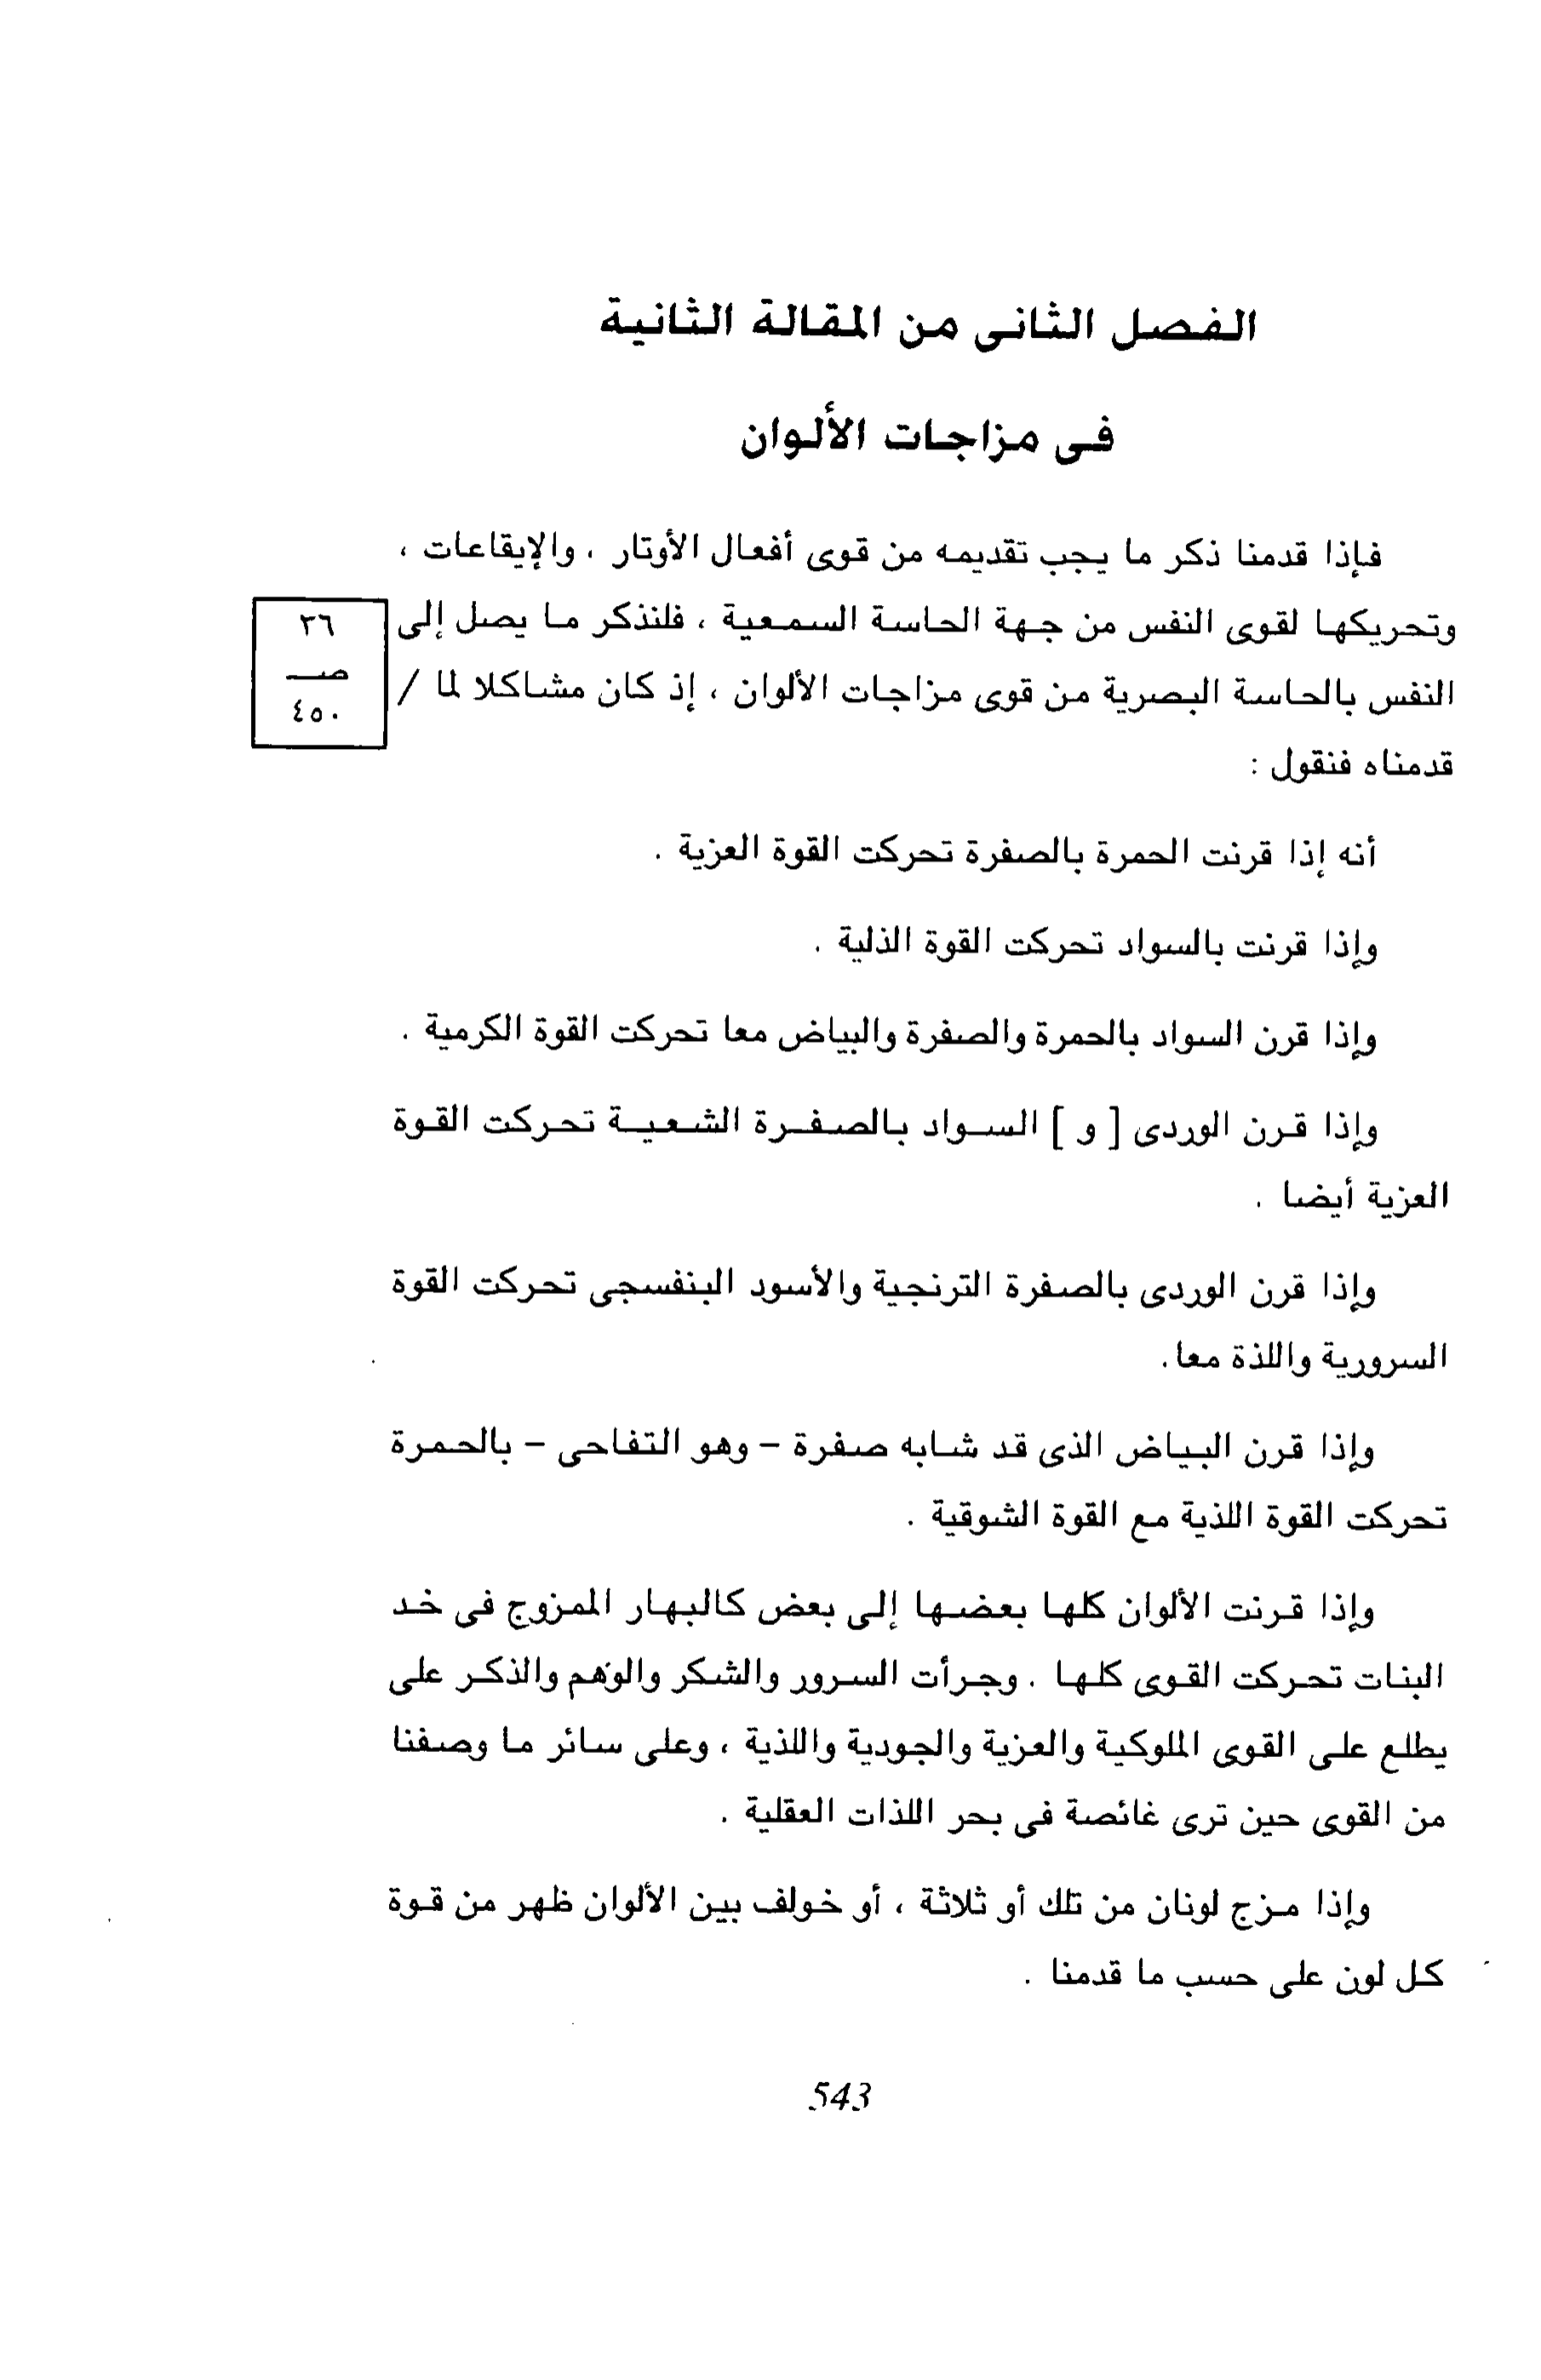 الفصل الثانى من المقالة الثانية
فى مزاجات الألوان
فإذا قدمنا ذكر ما يجب تقديمه من قوى أفعال الأوتار ، والإيقاعات ،
وتحريكها لقوى النفس من جهة الحاسة السمعية ، فلنذكر ما يصل إلى
النفس بالحاسة البصرية من قوى مزاجات الألوان ، إذ كان مشاكلا لما /
٢٦
صـ
٤٥٠
قدمناه فنقول :
أنه إذا قرنت الحمرة بالصفرة تحركت القوة العزية .
وإذا قرنت بالسواد تحركت القوة الذلية .
وإذا قرن السواد بالحمرة والصفرة والبياض معا تحركت القوة الكرمية .
وإذا قرن الوردى [ و ] السواد بالصفرة الشعية تحركت القوة
العزية أيضا .
وإذا قرن الوردى بالصفرة الترنجية والأسود البنفسجى تحركت القوة
السرورية واللذة معا .
وإذا قرن البياض الذى قد شابه صفرة - وهو التفاحى - بالحمرة
تحركت القوة اللذية مع القوة الشوقية .
وإذا قرنت الألوان كلها بعضها إلى بعض كالبهار الممزوج فى خد
البنات تحركت القوى كلها . وجرأت السرور والشكر والوهم والذكر على
يطلع على القوى الملوكية والعزية والجودية واللذية ، وعلى سائر ما وصفنا
من القوى حين ترى غائصة فى بحر اللذات العقلية .
وإذا مزج لونان من تلك أو ثلاثة ، أو خولف بين الألوان ظهر من قوة
كل لون على حسب ما قدمنا .
543